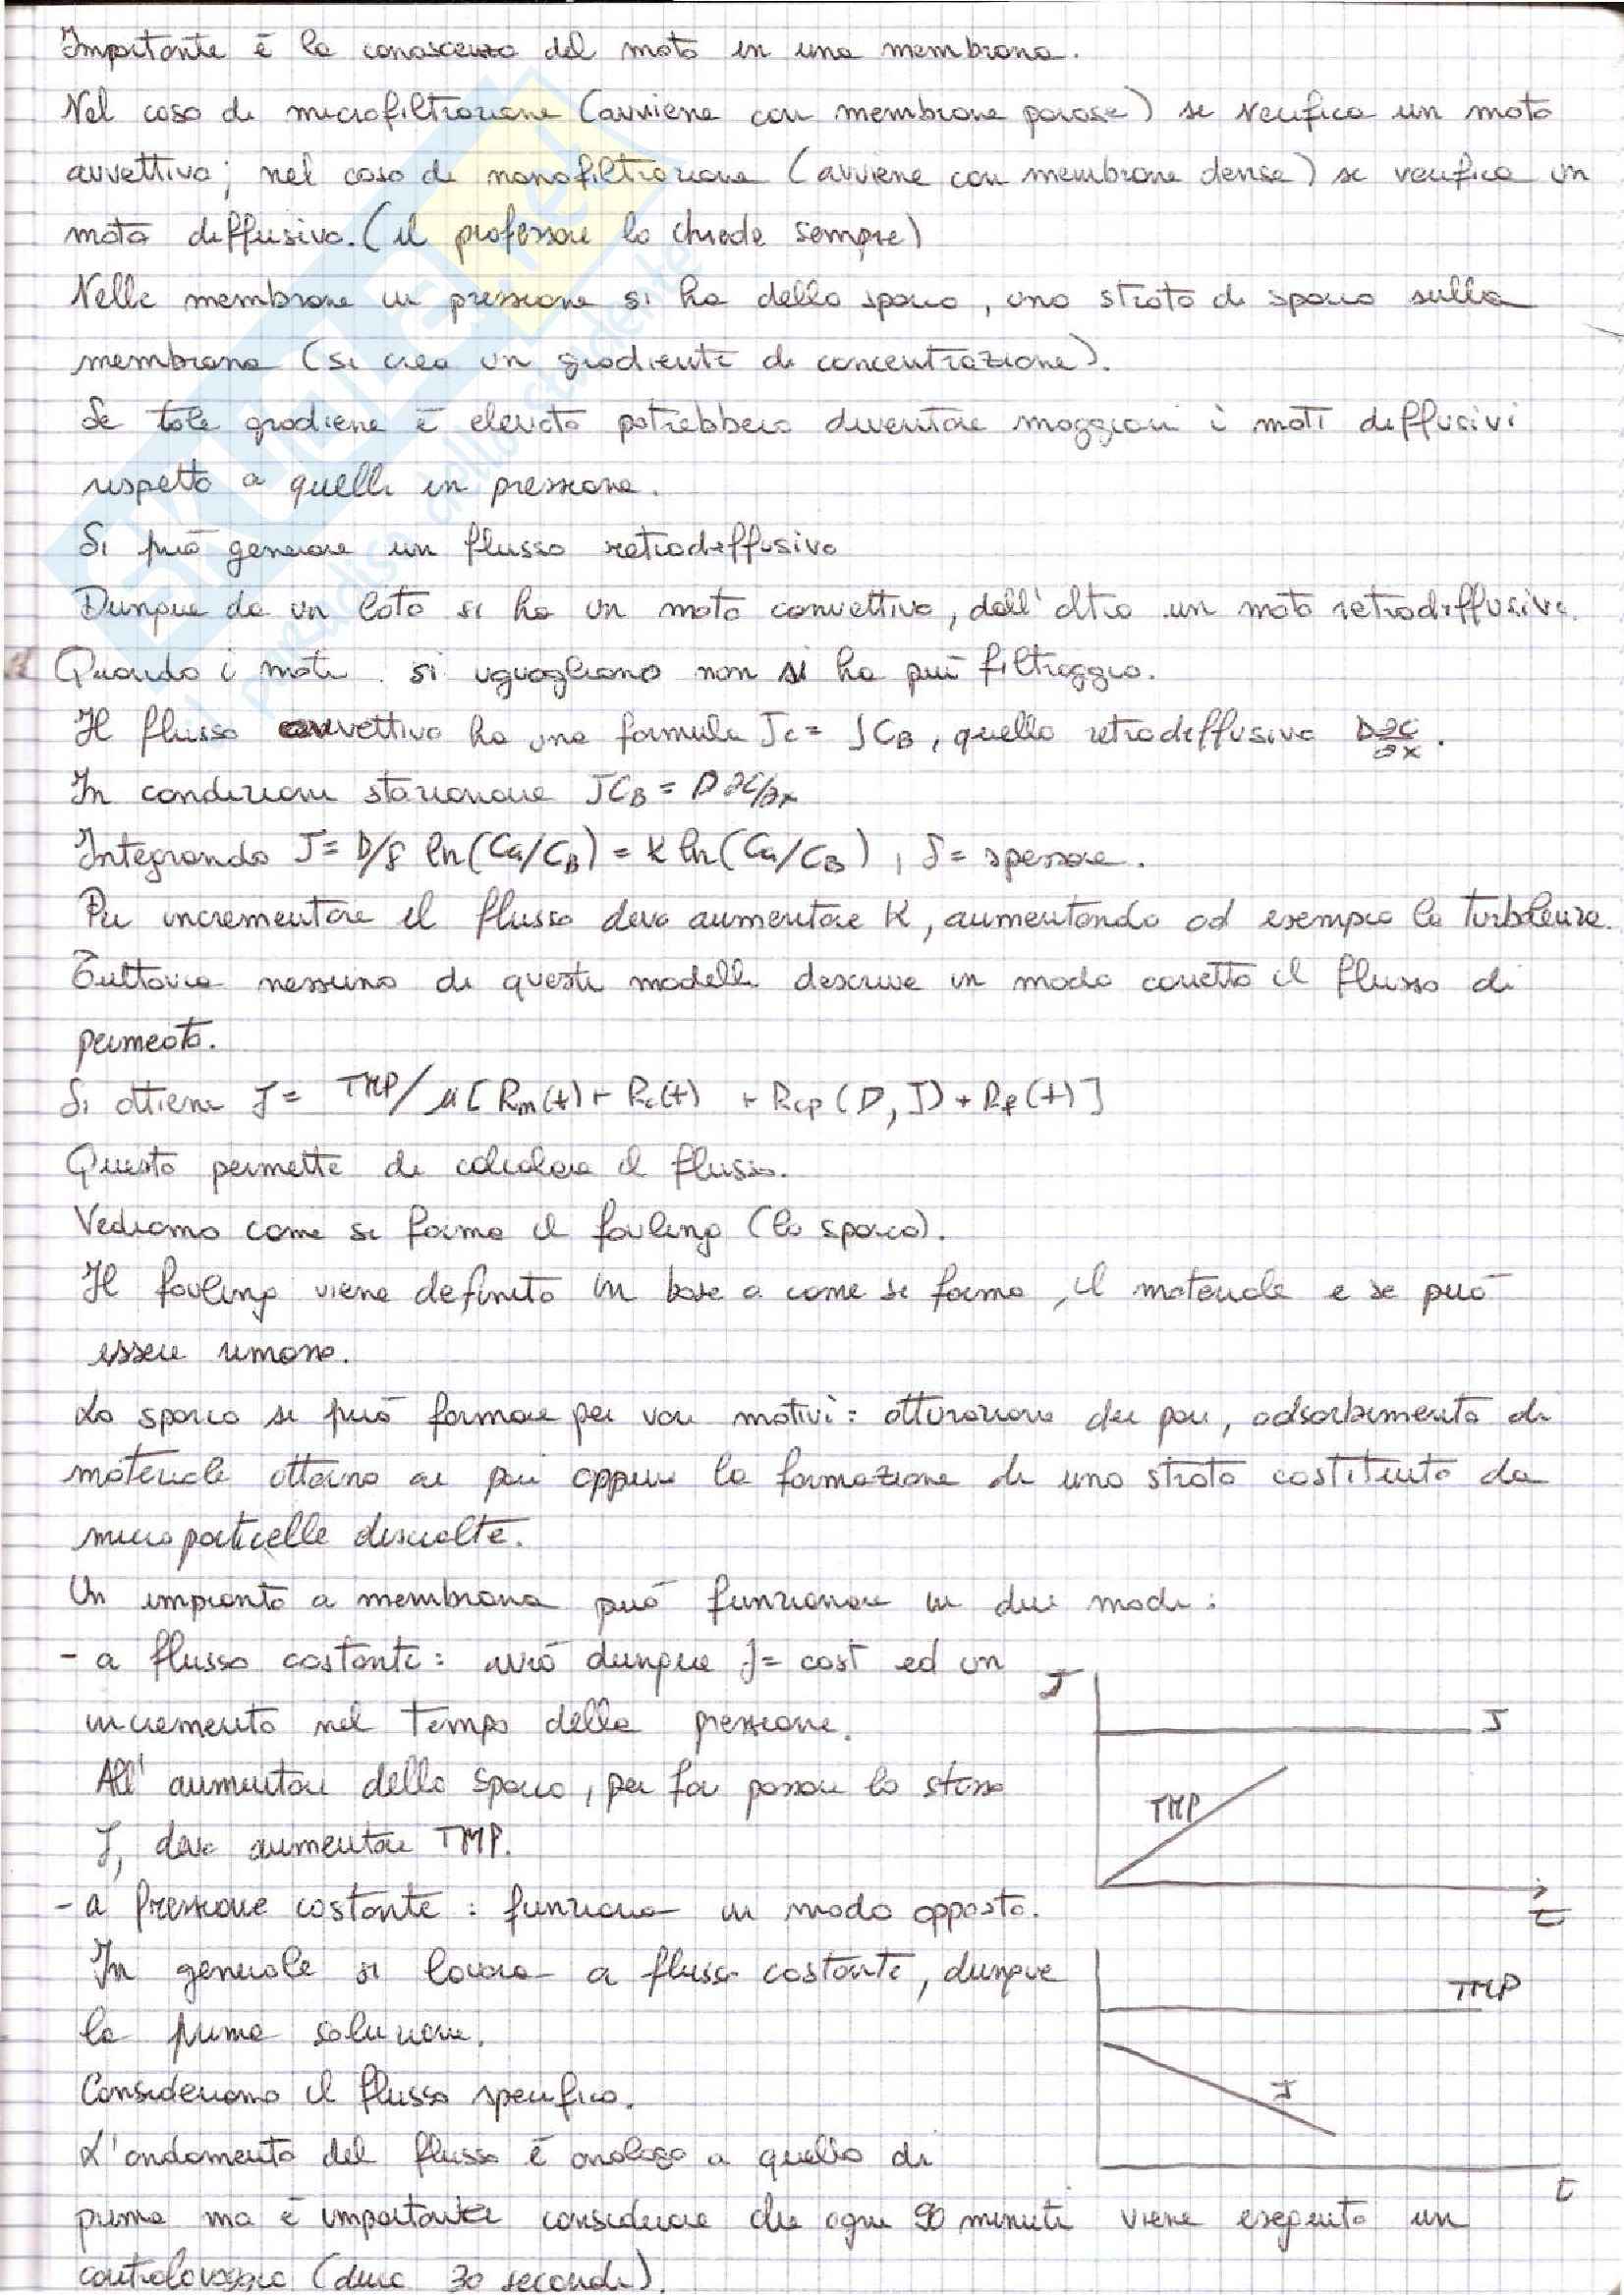 Importante è la conoscenza del moto in una membrana.
Nel caso di microfiltrazione (avviene con membrane porose) si verifica un moto
avvettivo; nel caso di nanofiltrazione (avviene con membrane dense) si verifica un
moto diffusivo. (il professore lo chiede sempre)
Nelle membrane in pressione si ha dello sporco, uno strato di sporco sulla
membrana (si crea un gradiente di concentrazione).
Se tale gradiene è elevato potrebbero diventare maggiori i moti diffusivi
rispetto a quelli in pressione.
Si può generare un flusso retrodiffusivo
Dunque da un lato si ha un moto convettivo, dall'altro un moto retrodiffusivo.
Quando i moti si uguagliano non si ha più filtraggio.
Il flusso avvettivo ha una formula Jc = JCB, quello retrodiffusivo D∂C/∂x.
In condizioni stazionarie JCB = D ∂C/∂x
Integrando J = D/δ ln(Ca/CB) = K ln(Ca/CB), δ = spessore.
Per incrementare il flusso devo aumentare K, aumentando ad esempio la turbolenza.
Tuttavia nessuno di questi modelli descrive in modo corretto il flusso di
permeato.
Si ottiene J = TMP/μ[Rm(t)+ Rc(t) + Rcp(D,J)+ Rf(t)]
Questo permette di calcolare il flusso.
Vediamo come si forma il fouling (lo sporco).
Il fouling viene definito in base a come si forma, il materiale e se può
essere rimosso.
Lo sporco si può formare per vari motivi: otturazione dei pori, adsorbimento di
materiale attorno ai pori oppure la formazione di uno strato costituito da
microparticelle disciolte.
Un impianto a membrana può funzionare in due modi:
- a flusso costante: avrò dunque J = cost ed un
incremento nel tempo della pressione.
All'aumentare dello sporco, per far passare lo stesso
J, devo aumentare TMP.
J
J
TMP
t
- a pressione costante: funziona in modo opposto.
In generale si lavora a flusso costante, dunque
la prima soluzione.
TMP
J
t
Consideriamo il flusso specifico.
L'andamento del flusso è analogo a quello di
prima ma è importante considerare che ogni 90 minuti viene eseguito un
controlavaggio (dura 30 secondi).
SKUOLA.net
il paradiso dello studente